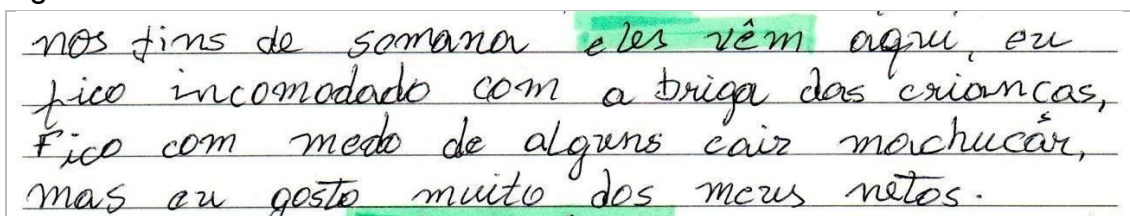 nos fins de semana eles vêm aqui, eu
fico incomodado com a briga das criancas,
Fico com medo de alguns cair machucar,
mas eu gosto muito dos meus netos.